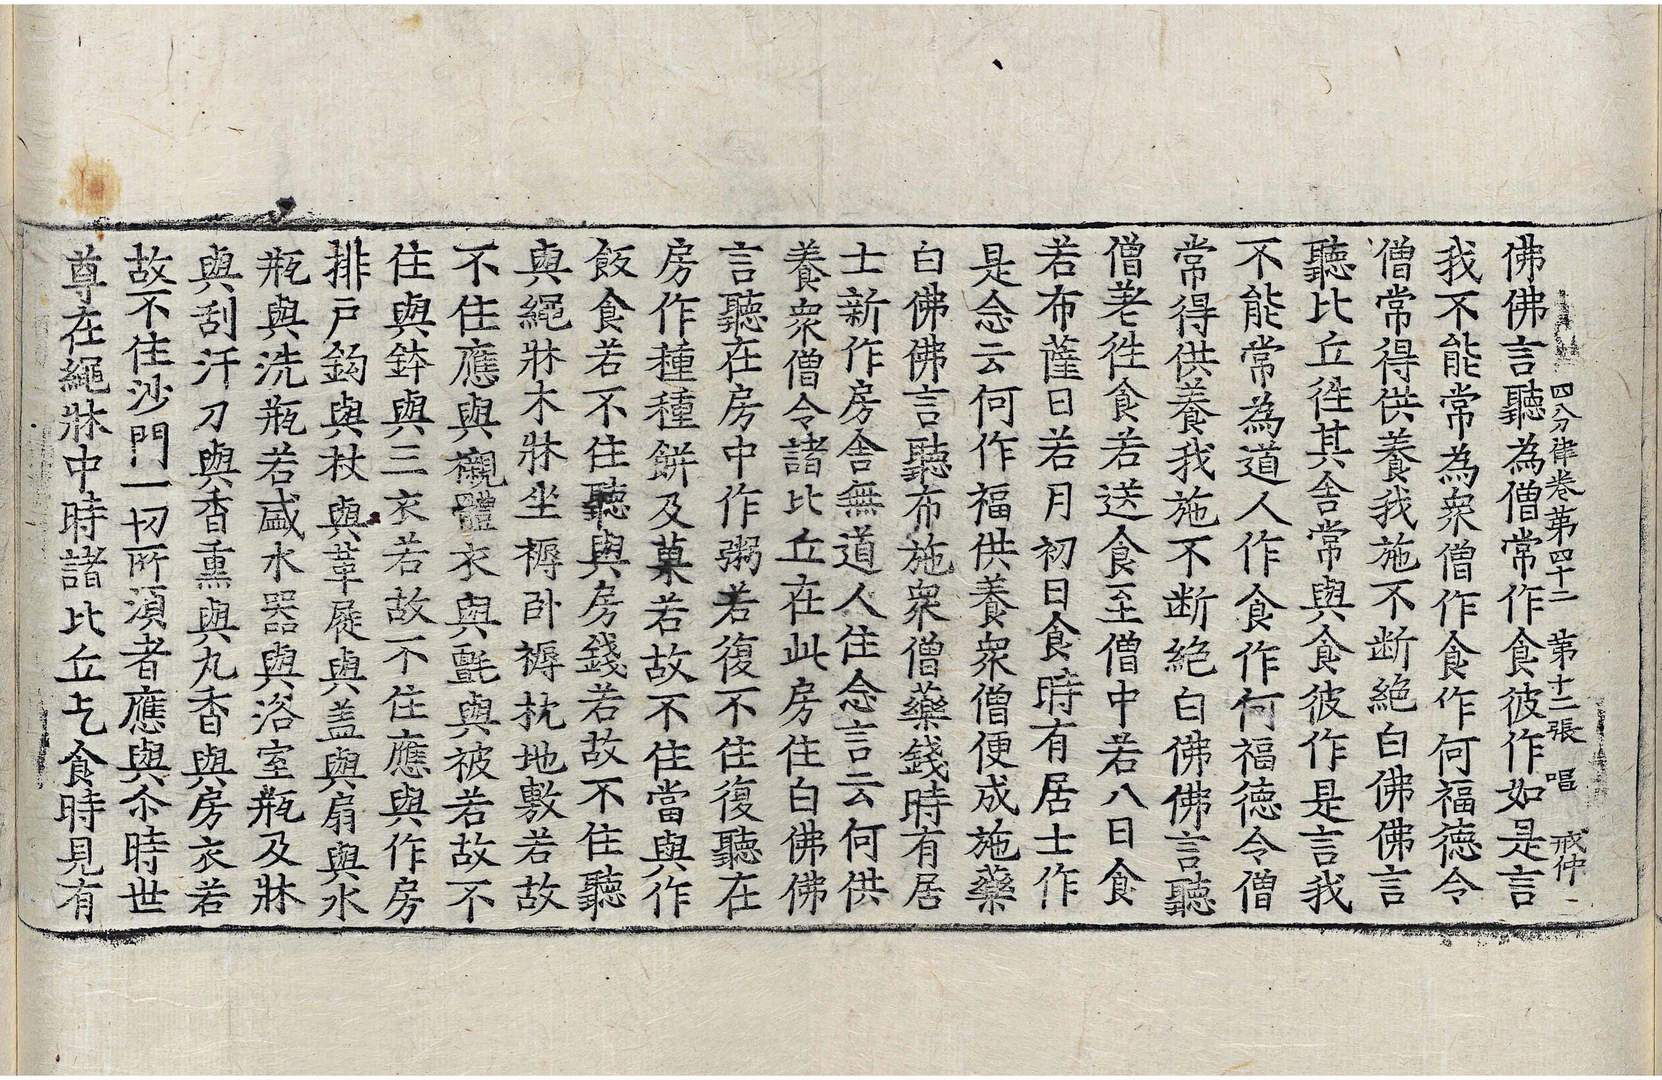 四分律卷第四十二　第十二張　唱　戒仲
佛佛言聽為僧常作食彼作如是言
我不能常為衆僧作食作何福德令
僧常得供養我施不斷絶白佛佛言
聽比丘徃其舍常與食彼作是言我
不能常為道人作食作何福德令僧
常得供養我施不断絶白佛佛言聽
僧差徃食若送食至僧中若八日食
若布薩日若月初日食時有居士作
是念云何作福供養衆僧便成施藥
白佛佛言聽布施衆僧藥錢時有居
士新作房舍無道人住念言云何供
養衆僧令諸比丘在此房住白佛佛
言聽在房中作粥若復不住復聽在
房作種種餅及菓若故不住當與作
飯食若不住聽與房錢若故不住聽
與繩牀木牀坐褥卧褥枕地敷若故
不住應與襯體衣與氈與被若故不
住與鉢與三衣若故不住應與作房
排戶鉤與杖與革屣與盖與扇與水
瓶與洗瓶若盛水器與浴室瓶及牀
與刮汗刀與香熏與丸香與房衣若
故不住沙門一切所須者應與尒時世
尊在繩牀中時諸比丘乞食時見有